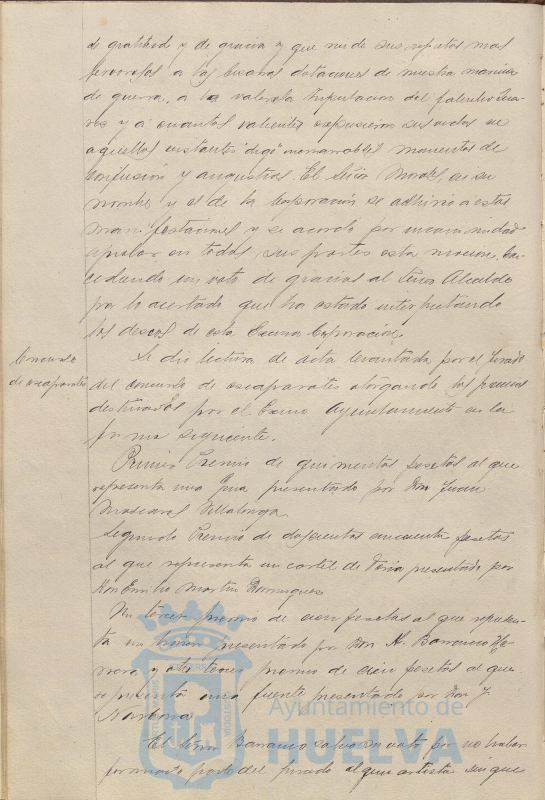 de gratitud y de gracia y que una de sus repetos mas
fervorosos a las bravas dotaciones de nuestra marina
de guerra, a la valerosa tripulacion del
y a cuantos valientes expusieron sus vidas en
aquellos instantes inenarrables momentos de
confusión y angustias. El Señor Morales, en su
nombre y el de la Corporación se adhirió a estas
manifestaciones y se acordó por unanimidad
aprobar en todas sus partes esta mocion, con-
cediendo un voto de gracias al Señor Alcalde
por lo acertado que ha estado interpretando
los deseos de esta Excma Corporación.
Concurso
de escaparates
Se dió lectura de acta levantada por el Jurado
del concurso de escaparates otorgando los premios
destinados por el Excmo Ayuntamiento en la
forma siguiente.
Primer Premio de quinientas pesetas al que
representa una Grua presentado por Don Juan
Mascarós Villalonga
Segundo Premio de doscientas cincuenta pesetas
al que representa un cartel de Feria presentado por
Don Emilio Martin Dominguez
Un tercer premio de cien pesetas al que represen-
ta un presentado por Don A. Barranco He-
rrera y otro tercer premio de cien pesetas al que
representa una fuente presentado por Don J.
Narbona
El Señor Barranco salva su voto por no haber
formado parte del jurado algun artista sin que
Ayuntamiento de
HUELVA